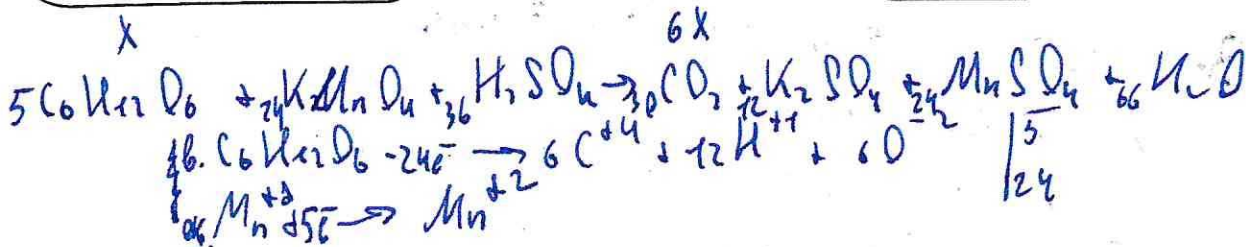 x 6x
5C6H12O6 + 24KMnO4 + 36H2SO4 → 30CO2 + 12K2SO4 + 24MnSO4 + 66H2O
в. C6H12O6 - 24ē → 6C+4 + 12H+1 + 6O-2 | 5
ок. Mn+7 + 5ē → Mn+2 | 24